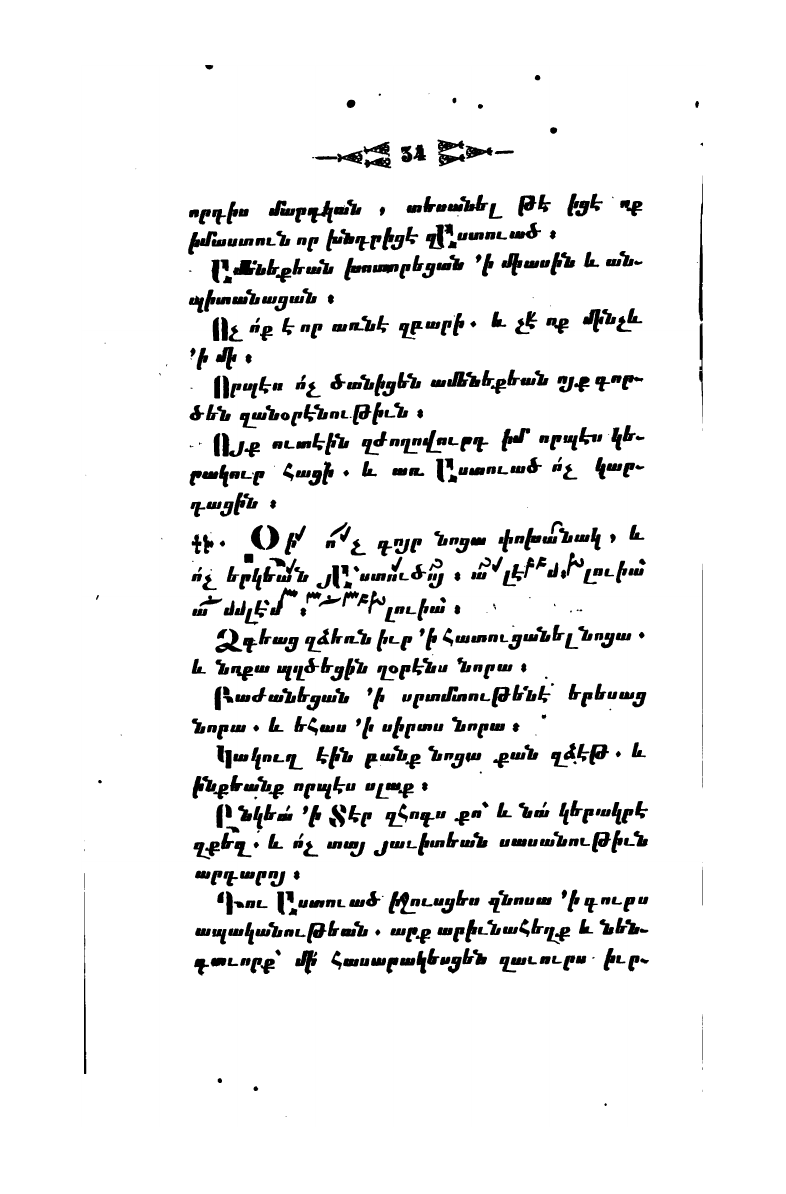 34
որդիս մարդկան , տեսանել թէ իցէ ոք
իմաստուն որ խնդրիցէ զԱստուած ։
Ամենեքեան խոտորեցան ՚ի միասին և ան-
պիտանացան ։
Ոչ ո՛ք է որ առնէ զբարի . և չէ ոք մինչև
՚ի մի ։
Որպէս ո՛չ ծանիցեն ամենեքեան ոյք գոր-
ծեն զանօրէնութիւն ։
Ոյք ուտէին զժողովուրդ իմ որպէս կե-
րակուր հացի . և առ Աստուած ո՛չ կար-
դացին ։
Օի ո՛չ գոյր նոցա փոխանակ , և
ո՛չ երկեան յԱստուծոյ ։ ալէլուիա
ալէլուիա ։
Ձգեաց զձեռն իւր ՚ի հատուցանել նոցա .
և նոքա պղծեցին զօրէնս նորա ։
Բաժանեցան ՚ի սրտմտութենէ երեսաց
նորա . և եհաս ՚ի սիրտս նորա ։
Կակուղ էին բանք նոցա քան զձէթ . և
ինքեանք որպէս սլաք ։
Ընկեա՛ ՚ի Տէր զհոգս քո՝ և նա՛ կերակրէ
զքեզ . և ո՛չ տայ յաւիտեան սասանութիւն
արդարոյ ։
Դու Աստուած իջուսցես զնոսա ՚ի գուբս
ապականութեան . արք արիւնահեղք և նեն-
գաւորք՝ մի՛ հասարակեսցեն զաւուրս իւր-